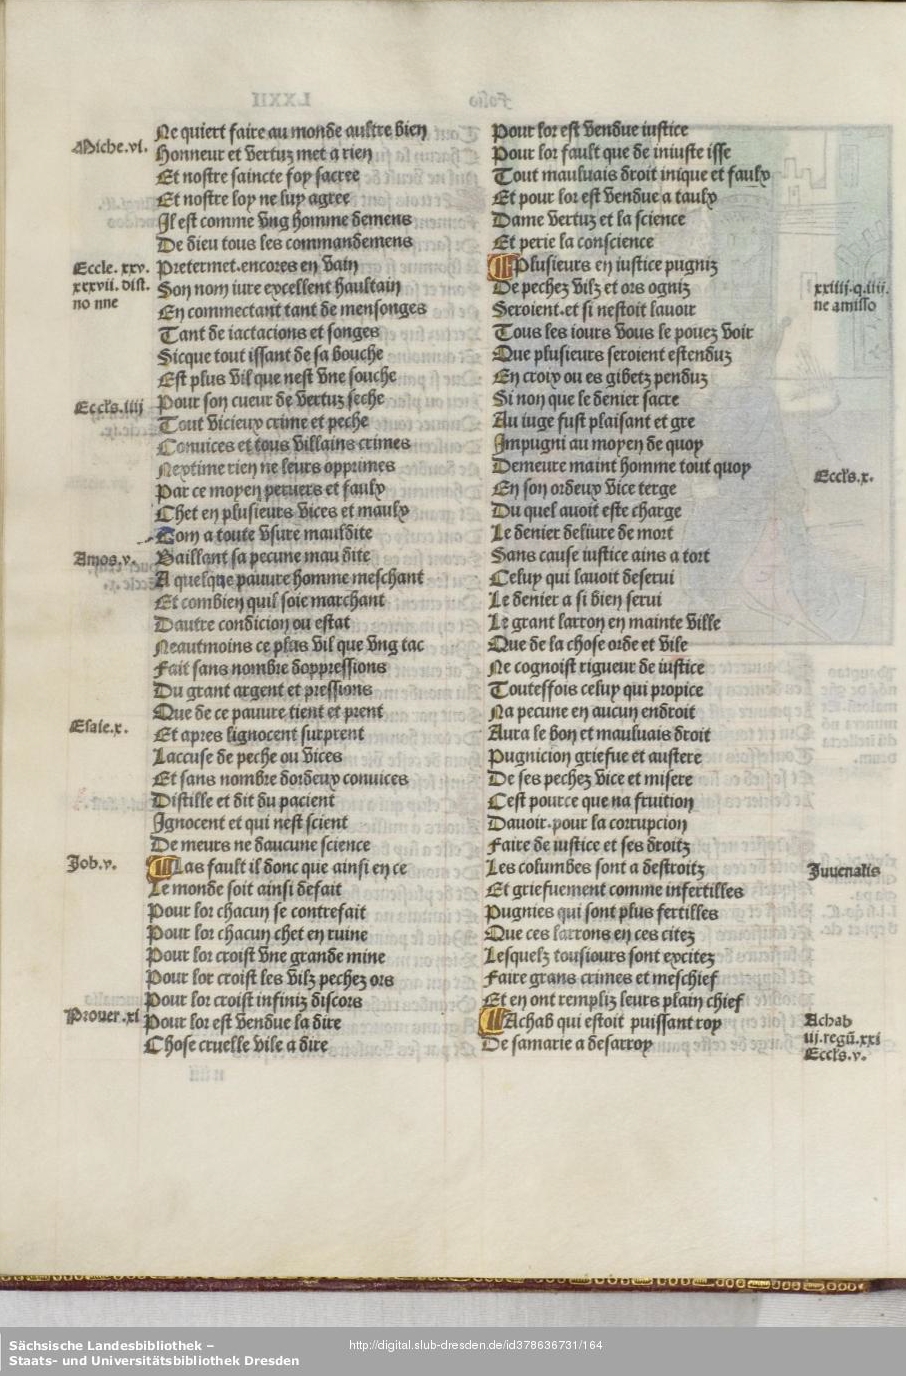 Miche.vi.
Ne quiert faire au monde aultre bien
Honneur et vertuz met a rien
Et nostre saincte foy sacree
Et nostre loy ne luy agree
Il est comme vng homme demens
De dieu tous les commandemens
Eccle. xxv.
xxxvii. dist.
no nne
Pretermet.encores en vain
Son nom iure excellent haultain
En commectant tant de mensonges
Tant de iactacions et songes
Sicque tout issant de sa bouche
Est plus vil que nest vne souche
Eccls.iiij
Pour son cueur de vertuz seche
Tout vicieux crime et peche
Conuices et tous villains crimes
Nextime rien ne leurs opprimes
Par ce moyen peruers et faulx
Chet en plusieurs vices et maulx
Com a toute vsure mauldite
Amos.v.
Baillant sa pecune mau dite
A quelque pauure homme meschant
Et combien quil soie marchant
Dautre condicion ou estat
Neautmoins ce plus vil que vng tac
Fait sans nombre doppressions
Du grant argent et pressions
Que de ce pauure tient et prent
Esaie.x.
Et apres lignocent surprent
Laccuse de peche ou vices
Et sans nombre dordeux conuices
Distille et dit du pacient
Ignocent et qui nest scient
De meurs ne daucune science
Job.v.
Las fault il donc que ainsi en ce
Le monde soit ainsi defait
Pour lor chacun se contrefait
Pour lor chacun chet en ruine
Pour lor croist vne grande mine
Pour lor croist les vilz pechez ors
Pour lor croist infiniz discors
Prouer.xi
Pour lor est vendue la dire
Chose cruelle vile a dire
Pour lor est vendue iustice
Pour lor fault que de iniuste isse
Tout mauluais droit inique et faulx
Et pour lor est vendue a taulx
Dame vertuz et la science
Et perie la conscience
Plusieurs en iustice pugniz
De pechez vilz et ors ogniz
xxiiij.q.iiij.
ne amisso
Seroient.et si nestoit lauoir
Tous les iours vous le pouez voir
Que plusieurs seroient estenduz
En croix ou es gibetz penduz
Si non que le denier sacre
Au iuge fust plaisant et gre
Impugni au moyen de quoy
Demeure maint homme tout quoy
Eccls.x.
En son ordeux vice terge
Du quel auoit este charge
Le denier deliure de mort
Sans cause iustice ains a tort
Celuy qui lauoit deserui
Le denier a si bien serui
Le grant larron en mainte ville
Que de la chose orde et vile
Ne cognoist rigueur de iustice
Toutesfois celuy qui propice
Na pecune en aucun endroit
Aura le bon et mauluais droit
Pugnicion griefue et austere
De ses pechez vice et misere
Cest pource que na fruition
Dauoir.pour la corrupcion
Faire de iustice et ses droitz
Les columbes sont a destroitz
Juuenalis
Et griefuement comme infertilles
Pugnies qui sont plus fertilles
Que ces larrons en ces citez
Lesquelz tousiours sont excitez
Faire grans crimes et meschief
Et en ont rempliz leurs plain chief
Achab qui estoit puissant roy
De samarie a desarroy
Achab
iij.regū.xxi
Eccls.v.
Sächsische Landesbibliothek –
Staats- und Universitätsbibliothek Dresden
http://digital.slub-dresden.de/id378636731/164